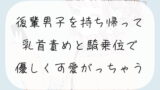 後輩男子を持ち帰って
乳首責めと騎乗位で
優しくす愛がっちゃう